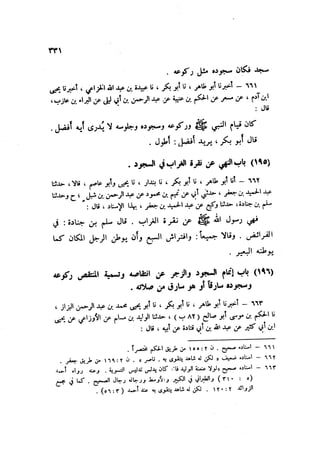 ٣٣١
سجد فكان سجوده مثل ركوعه .
٦٦١ – أخبرنا أبو طاهر ، نا أبو بكر ، نا عبيدة بن عبد الله الخزاعي ، أخبرنا يحيى
ابن آدم ، عن مسعر عن الحكم بن عتيبة عن عبد الرحمن بن أبي ليلى عن البراء بن عازب ،
قال :
كان قيام النبي ﷺ وركوعه وسجوده وجلوسه لا يُدرى أيه أفضل .
قال أبو بكر ، يريد أفضل : أطول .
(١٩٥) باب النهي عن نقرة الغراب في السجود .
٦٦٢ – أنا أبو طاهر ، نا أبو بكر ، نا بندار ، نا يحيى وأبو عاصم ، قالا ، حدثنا
عبد الحميد بن جعفر ، حدثني أبي عن تميم بن محمود عن عبد الرحمن بن شبل ، ح وحدثنا
سلم بن جنادة ، حدثنا وكيع عن عبد الحميد بن جعفر ، بهذا الإسناد ، قال :
نهى رسول الله ﷺ عن نقرة الغراب . قال سلم بن جنادة : في
الفرائض . وقالا جميعاً : وافتراش السبع وأن يوطن الرجل المكان كما
يوطنه البعير .
(١٩٦) باب إتمام السجود والزجر عن انتقاصه وتسمية المنتقص ركوعه
وسجوده سارقاً أو هو سارق من صلاته .
٦٦٣ – أخبرنا أبو طاهر ، نا أبو بكر ، نا أبو يحيى محمد بن عبد الرحمن البزاز ،
نا الحكم بن موسى أبو صالح (٨٢ ب) ، حدثنا الوليد بن مسلم عن الأوزاعي عن يحيى
ابن أبي كثير عن عبد الله بن أبي قتادة عن أبيه ، قال :
٦٦١ – اسناده صحيح . ن ٢ : ١٥٥ من طريق الحكم مختصراً .
٦٦٢ – اسناده ضعيف و لكن له شاهد يتقوى به . ناصر » . ن ٢ : ١٦٩ من طريق جعفر .
٦٦٣ – اسناده صحيح لولا عنعنة الوليد فانه كان يدلس تدليس التسوية . وعنه رواه أحمد
(٥ : ٣١٠) والطبراني في الكبير والأوسط ورجاله رجال الصحيح . كما في مجمع
الزوائد ٢ : ١٢٠ . لكن له شاهد يتقوى به عند أحمد (٣ : ٥٦) .